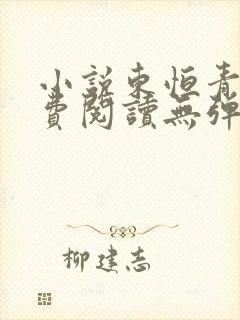 小說東恒青
費閱讀無彈
柳建志